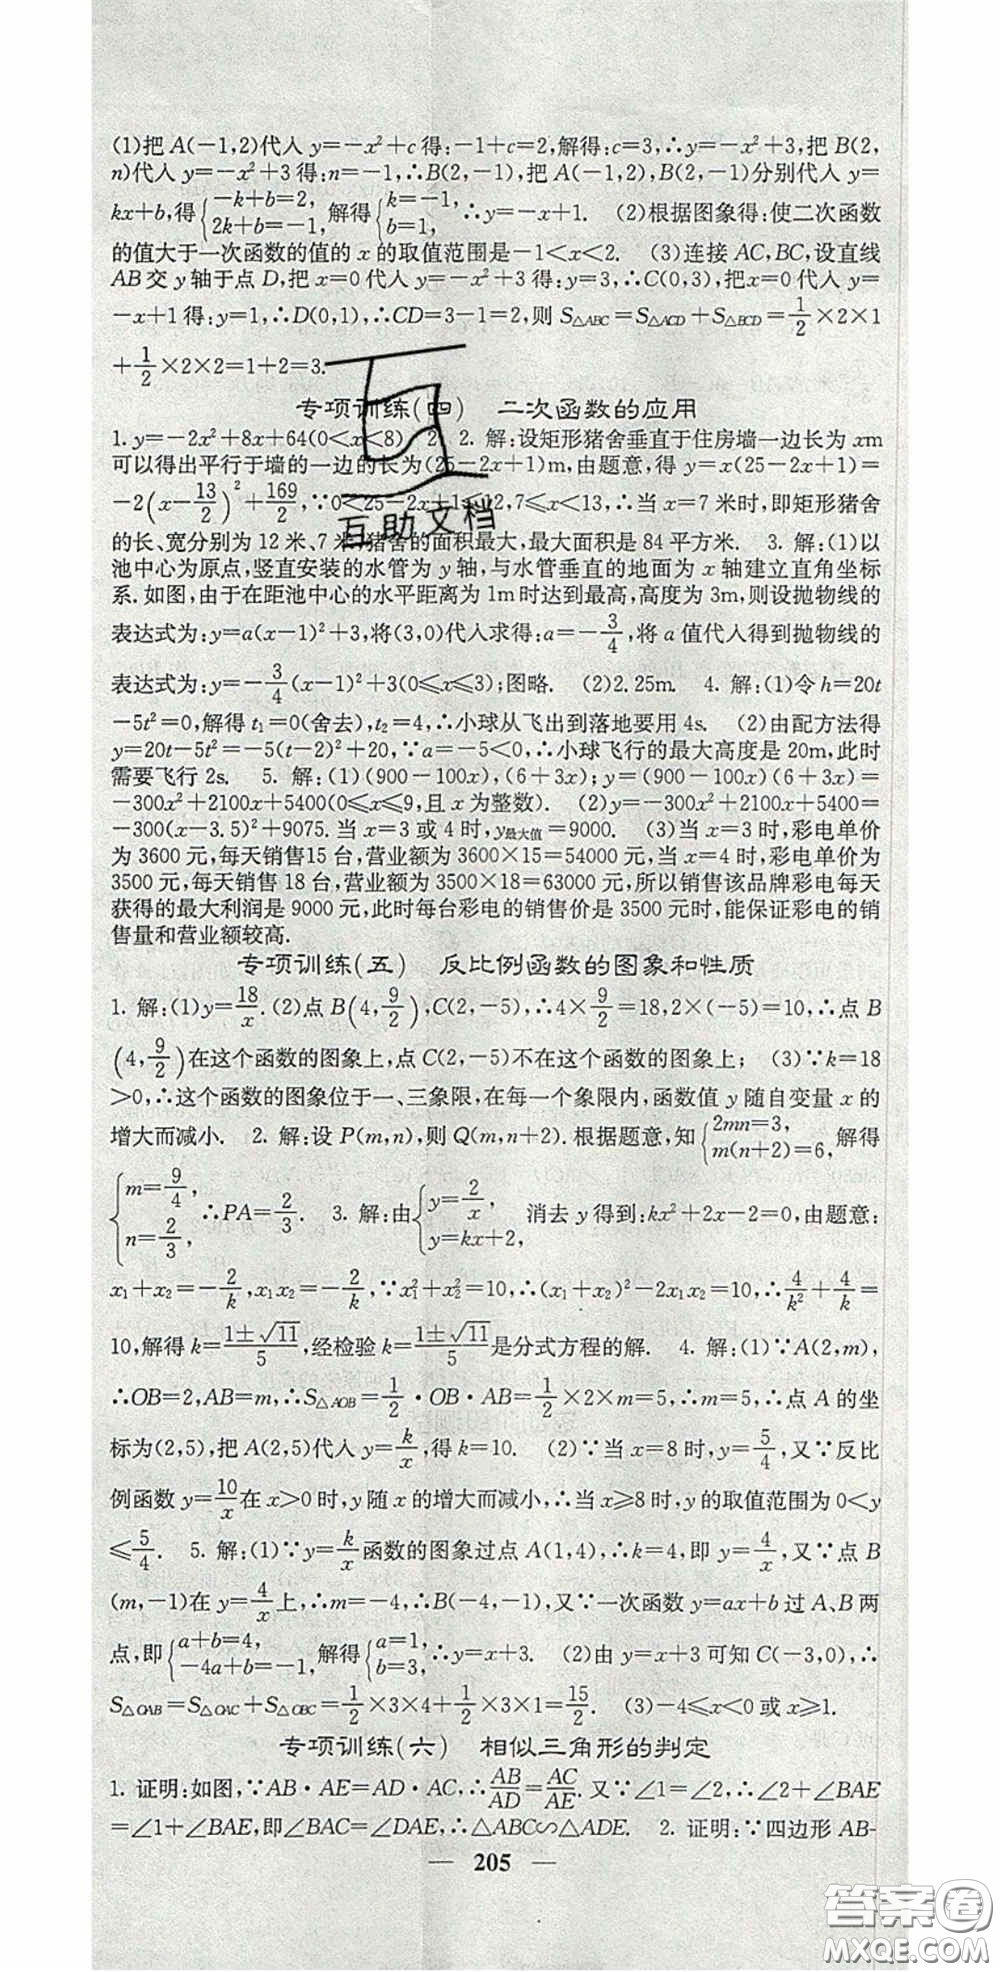 (1)把 A(-1,2)代入 y=-x²+c 得:-1+c=2,解得:c=3,∴y=-x²+3,把 B(2,
n)代入 y=-x²+3得:n=-1,∴B(2,-1),把 A(-1,2),B(2,-1)分别代入 y=
kx+b,得{-k+b=2, 2k+b=-1, 解得{k=-1, b=1, ∴y=-x+1. (2)根据图象得:使二次函数
的值大于一次函数的值的 x 的取值范围是-1<x<2. (3)连接 AC,BC,设直线
AB 交 y 轴于点 D,把 x=0 代入 y=-x²+3 得:y=3,∴C(0,3),把x=0 代入 y=
-x+1 得:y=1,∴D(0,1),∴CD=3-1=2,则 S△ABC=S△ACD+S△BCD=1/2×2×1
+1/2×2×2=1+2=3.
专项训练(四) 二次函数的应用
1. y=-2x²+8x+64(0<x<8) 2 2. 解:设矩形猪舍垂直于住房墙一边长为 xm
可以得出平行于墙的一边的长为(25-2x+1)m,由题意,得 y=x(25-2x+1)=
-2(x-13/2)²+169/2,∵0<25-2x+1≤12,7≤x<13,∴当 x=7 米时,即矩形猪舍
的长、宽分别为 12 米、7 米,猪舍的面积最大,最大面积是 84 平方米. 3. 解:(1)以
池中心为原点,竖直安装的水管为 y 轴,与水管垂直的地面为 x 轴建立直角坐标
系.如图,由于在距池中心的水平距离为 1m时达到最高,高度为 3m,则设抛物线的
表达式为:y=a(x-1)²+3,将(3,0)代入求得:a=-3/4,将 a 值代入得到抛物线的
表达式为:y=-3/4(x-1)²+3(0≤x≤3);图略. (2)2.25m. 4. 解:(1)令 h=20t
-5t²=0,解得 t₁=0(舍去),t₂=4,∴小球从飞出到落地要用 4s. (2)由配方法得
y=20t-5t²=-5(t-2)²+20,∵a=-5<0,∴小球飞行的最大高度是 20m,此时
需要飞行 2s. 5. 解:(1)(900-100x),(6+3x);y=(900-100x)(6+3x)=
-300x²+2100x+5400(0≤x≤9,且 x 为整数). (2)y=-300x²+2100x+5400=
-300(x-3.5)²+9075.当 x=3 或 4 时,y最大值=9000. (3)当 x=3 时,彩电单价
为 3600 元,每天销售15 台,营业额为 3600×15=54000 元,当 x=4 时,彩电单价为
3500 元,每天销售 18 台,营业额为 3500×18=63000 元,所以销售该品牌彩电每天
获得的最大利润是 9000 元,此时每台彩电的销售价是 3500 元时,能保证彩电的销
售量和营业额较高.
专项训练(五) 反比例函数的图象和性质
1. 解:(1)y=18/x.(2)点 B(4,9/2),C(2,-5),∴4×9/2=18,2×(-5)=10,∴点 B
(4,9/2)在这个函数的图象上,点 C(2,-5)不在这个函数的图象上; (3)∵k=18
>0,∴这个函数的图象位于一、三象限,在每一个象限内,函数值 y 随自变量 x 的
增大而减小. 2. 解:设 P(m,n),则 Q(m,n+2).根据题意,知{2mn=3, m(n+2)=6, 解得
{m=9/4, n=2/3, ∴PA=2/3. 3. 解:由{y=2/x, y=kx+2, 消去 y 得到:kx²+2x-2=0,由题意:
x₁+x₂=-2/k,x₁x₂=-2/k,∵x₁²+x₂²=10,∴(x₁+x₂)²-2x₁x₂=10,∴4/k²+4/k=
10,解得 k=(1±√11)/5,经检验 k=(1±√11)/5是分式方程的解. 4. 解:(1)∵A(2,m),
∴OB=2,AB=m,∴S△AOB=1/2·OB·AB=1/2×2×m=5,∴m=5,∴点 A 的坐
标为(2,5),把 A(2,5)代入 y=k/x,得 k=10. (2)∵当 x=8 时,y=5/4,又∵反比
例函数 y=10/x在 x>0 时,y 随 x 的增大而减小,∴当 x≥8 时,y 的取值范围为 0<y
≤5/4. 5. 解:(1)∵y=k/x函数的图象过点 A(1,4),∴k=4,即 y=4/x,又∵点 B
(m,-1)在 y=4/x上,∴m=-4,∴B(-4,-1),又∵一次函数 y=ax+b 过 A、B 两
点,即{a+b=4, -4a+b=-1, 解得{a=1, b=3, ∴y=x+3. (2)由 y=x+3 可知 C(-3,0),∴
S△OAB=S△OAC+S△OBC=1/2×3×4+1/2×3×1=15/2. (3)-4≤x<0 或 x≥1.
专项训练(六) 相似三角形的判定
1. 证明:如图,∵AB·AE=AD·AC,∴AB/AD=AC/AE.又∵∠1=∠2,∴∠2+∠BAE
=∠1+∠BAE,即∠BAC=∠DAE,∴△ABC∽△ADE. 2. 证明:∵四边形 AB-
— 205 —
互助文档
答案圈
MXQE.COM